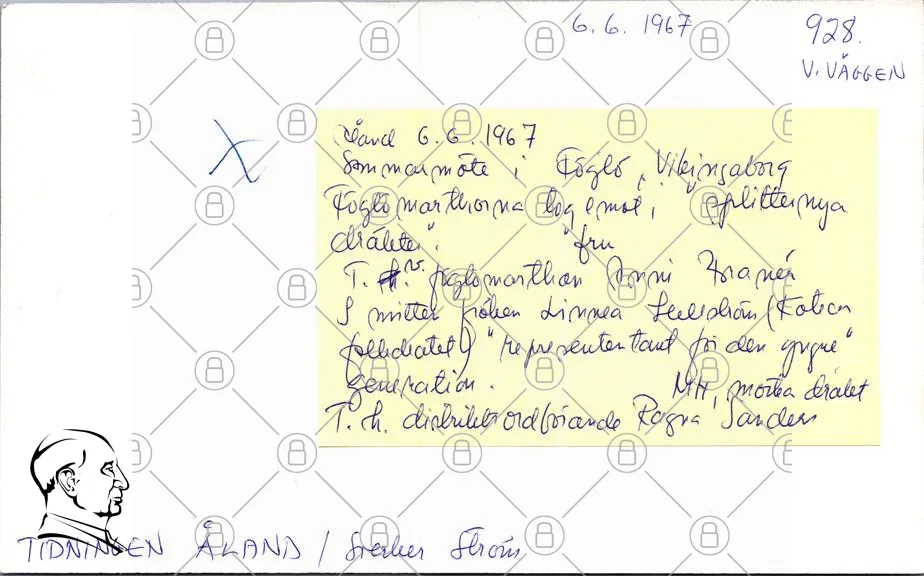 6.6.1967
928.
V. VÅGGEN
Åland 6.6.1967
Sommarmöte i Föglö, Vikingaborg
Föglömarthorna tog emot i "splitternya
dräkter".
"fru
T.v. föglömarthan Anni
I mitten fröken Linnea
folkdräkt) "representant för den yngre"
generation.
MH, mörka dräkt
T.h. distriktsordförande Ragna Sanders
TIDNINGEN ÅLAND / Sverker Ström